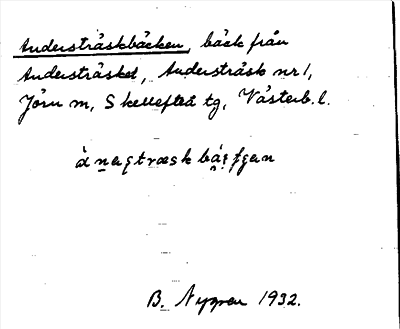 Andersträskbäcken, bäck från
Andersträsket, Andersträsk nr 1,
Jörn sn, Skellefteå tg, Västerb. l.
B. Nygren 1932.